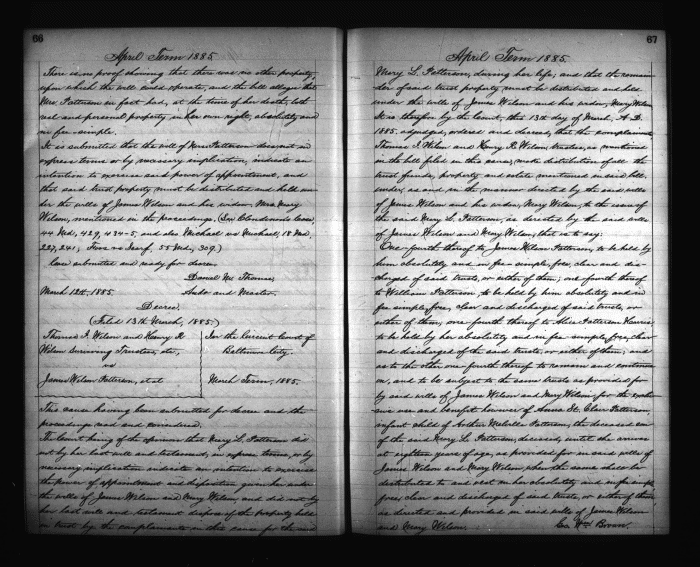 66
April Term 1885.
There is no proof showing that there was no other property,
upon which the will could operate, and the bill alleges that
Mrs. Patterson in fact had, at the time of her death, both
real and personal property in her own right, absolutely and
in fee-simple.
It is submitted that the will of Mrs. Patterson does not in
express terms or by necessary implication, indicate an
intention to exercise said power of appointment, and
that said trust property must be distributed and held un-
der the wills of James Wilson and his widow Mrs. Mary
Wilson, mentioned in the proceedings, (In Clendenin's case,
44 Md, 429, 434-5, and also Michael vs Michael, 18 Md.
227, 241, 55 Md, 309.)
Case submitted and ready for decree.
Daniel M. Thomas,
Auda and Master.
March 12th, 1885.
Decree.
(Filed 13th March, 1885.)
Thomas J. Wilson and Henry R.
Wilson surviving Trustees, etc.,
vs
James Wilson Patterson, et al
In the Circuit Court of
Baltimore City.
March Term, 1885.
This cause having been submitted for decree and the
proceedings read and considered.
The Court being of the opinion that Mary L. Patterson did
not by her last will and testament, in express terms, or by
necessary implication indicate an intention to exercise
the power of appointment and disposition given her under
the wills of James Wilson and Mary Wilson, and did not by
her last will and testament dispose of the property held
in trust by the complainants in this cause for the said
67
April Term 1885.
Mary L. Patterson, during her life; and that the remain-
der of said trust property must be distributed and held
under the wills of James Wilson and his widow, Mary Wilson
It is therefore by the Court, this 13th day of March, A.D.
1885, adjudged, ordered and decreed, that the complainants
Thomas J. Wilson and Henry R. Wilson, trustees, as mentioned
in the bill filed in this cause, make distribution of all the
trust funds, property and estate mentioned in said bill,
under, as and in the manner directed by the said wills
of James Wilson and his widow, Mary Wilson, to the issue of
the said Mary L. Patterson, as directed by the said wills
of James Wilson and Mary Wilson, that is to say:
One fourth thereof to James Wilson Patterson, to be held by
him absolutely and in fee-simple, free, clear and dis-
charged of said trusts, or either of them; one fourth thereof
to William Patterson, to be held by him absolutely and in
fee simple, free, clear and discharged of said trusts, or
either of them; one fourth thereof to Alice Patterson Harris
to be held by her absolutely and in fee-simple, free, clear
and discharged of the said trusts, or either of them; and
as to the other one fourth thereof to remain and continue
on, and to be subject to the same trusts as provided for
by said wills of James Wilson and Mary Wilson for the exclu-
sive use and benefit however of Anna St. Clair Patterson,
infant child of Arthur Melvill Patterson, the deceased son
of the said Mary L. Patterson, deceased, until she arrives
at eighteen years of age, as provided for in said wills of
James Wilson and Mary Wilson, when the same shall be
distributed to and vest in her absolutely and in fee simple
free, clear and discharged of said trusts, or either of them
as directed and provided in said wills of James Wilson
and Mary Wilson.
Geo. Wm. Brown.